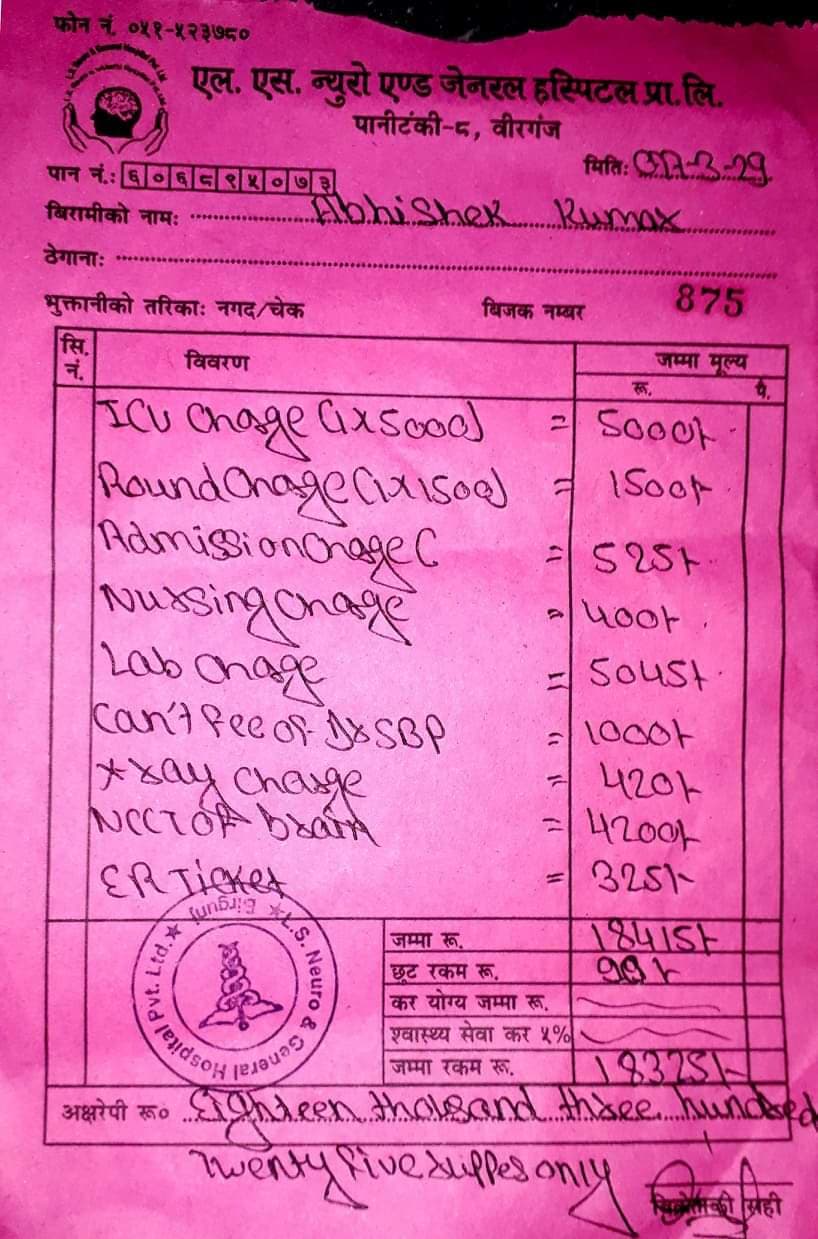 फोन नं. ०५१-५२३७८०
एल. एस. न्युरो एण्ड जेनरल हस्पिटल प्रा.लि.
पानीटंकी-८, वीरगंज
मितिः
पान नं.: ६०६८९५०७३
बिरामीको नामः Abhishek Kumar
ठेगानाः
भुक्तानीको तरिकाः नगद/चेक बिजक नम्बर 875
सि. नं. विवरण जम्मा मूल्य
रू. पै.
ICU Chage (1x5000) = 5000/-
Round Chage (1x1500) = 1500/-
Admission Chage ( = 525/-
Nursing Chage = 400/-
Lab Chage = 5045/-
Can't fee of Dr SBP = 1000/-
X xay Charge = 420/-
NCCT OF brain = 4200/-
ER Ticket = 325/-
L.S. Neuro & General Hospital Pvt. Ltd. Birgunj
जम्मा रू. 18415/-
छूट रकम रू.
कर योग्य जम्मा रू.
श्वास्थ्य सेवा कर ५%
जम्मा रकम रू. 18325/-
अक्षरेपी रू० Eighteen thousand three hundred
Twenty five ruppes only
सही